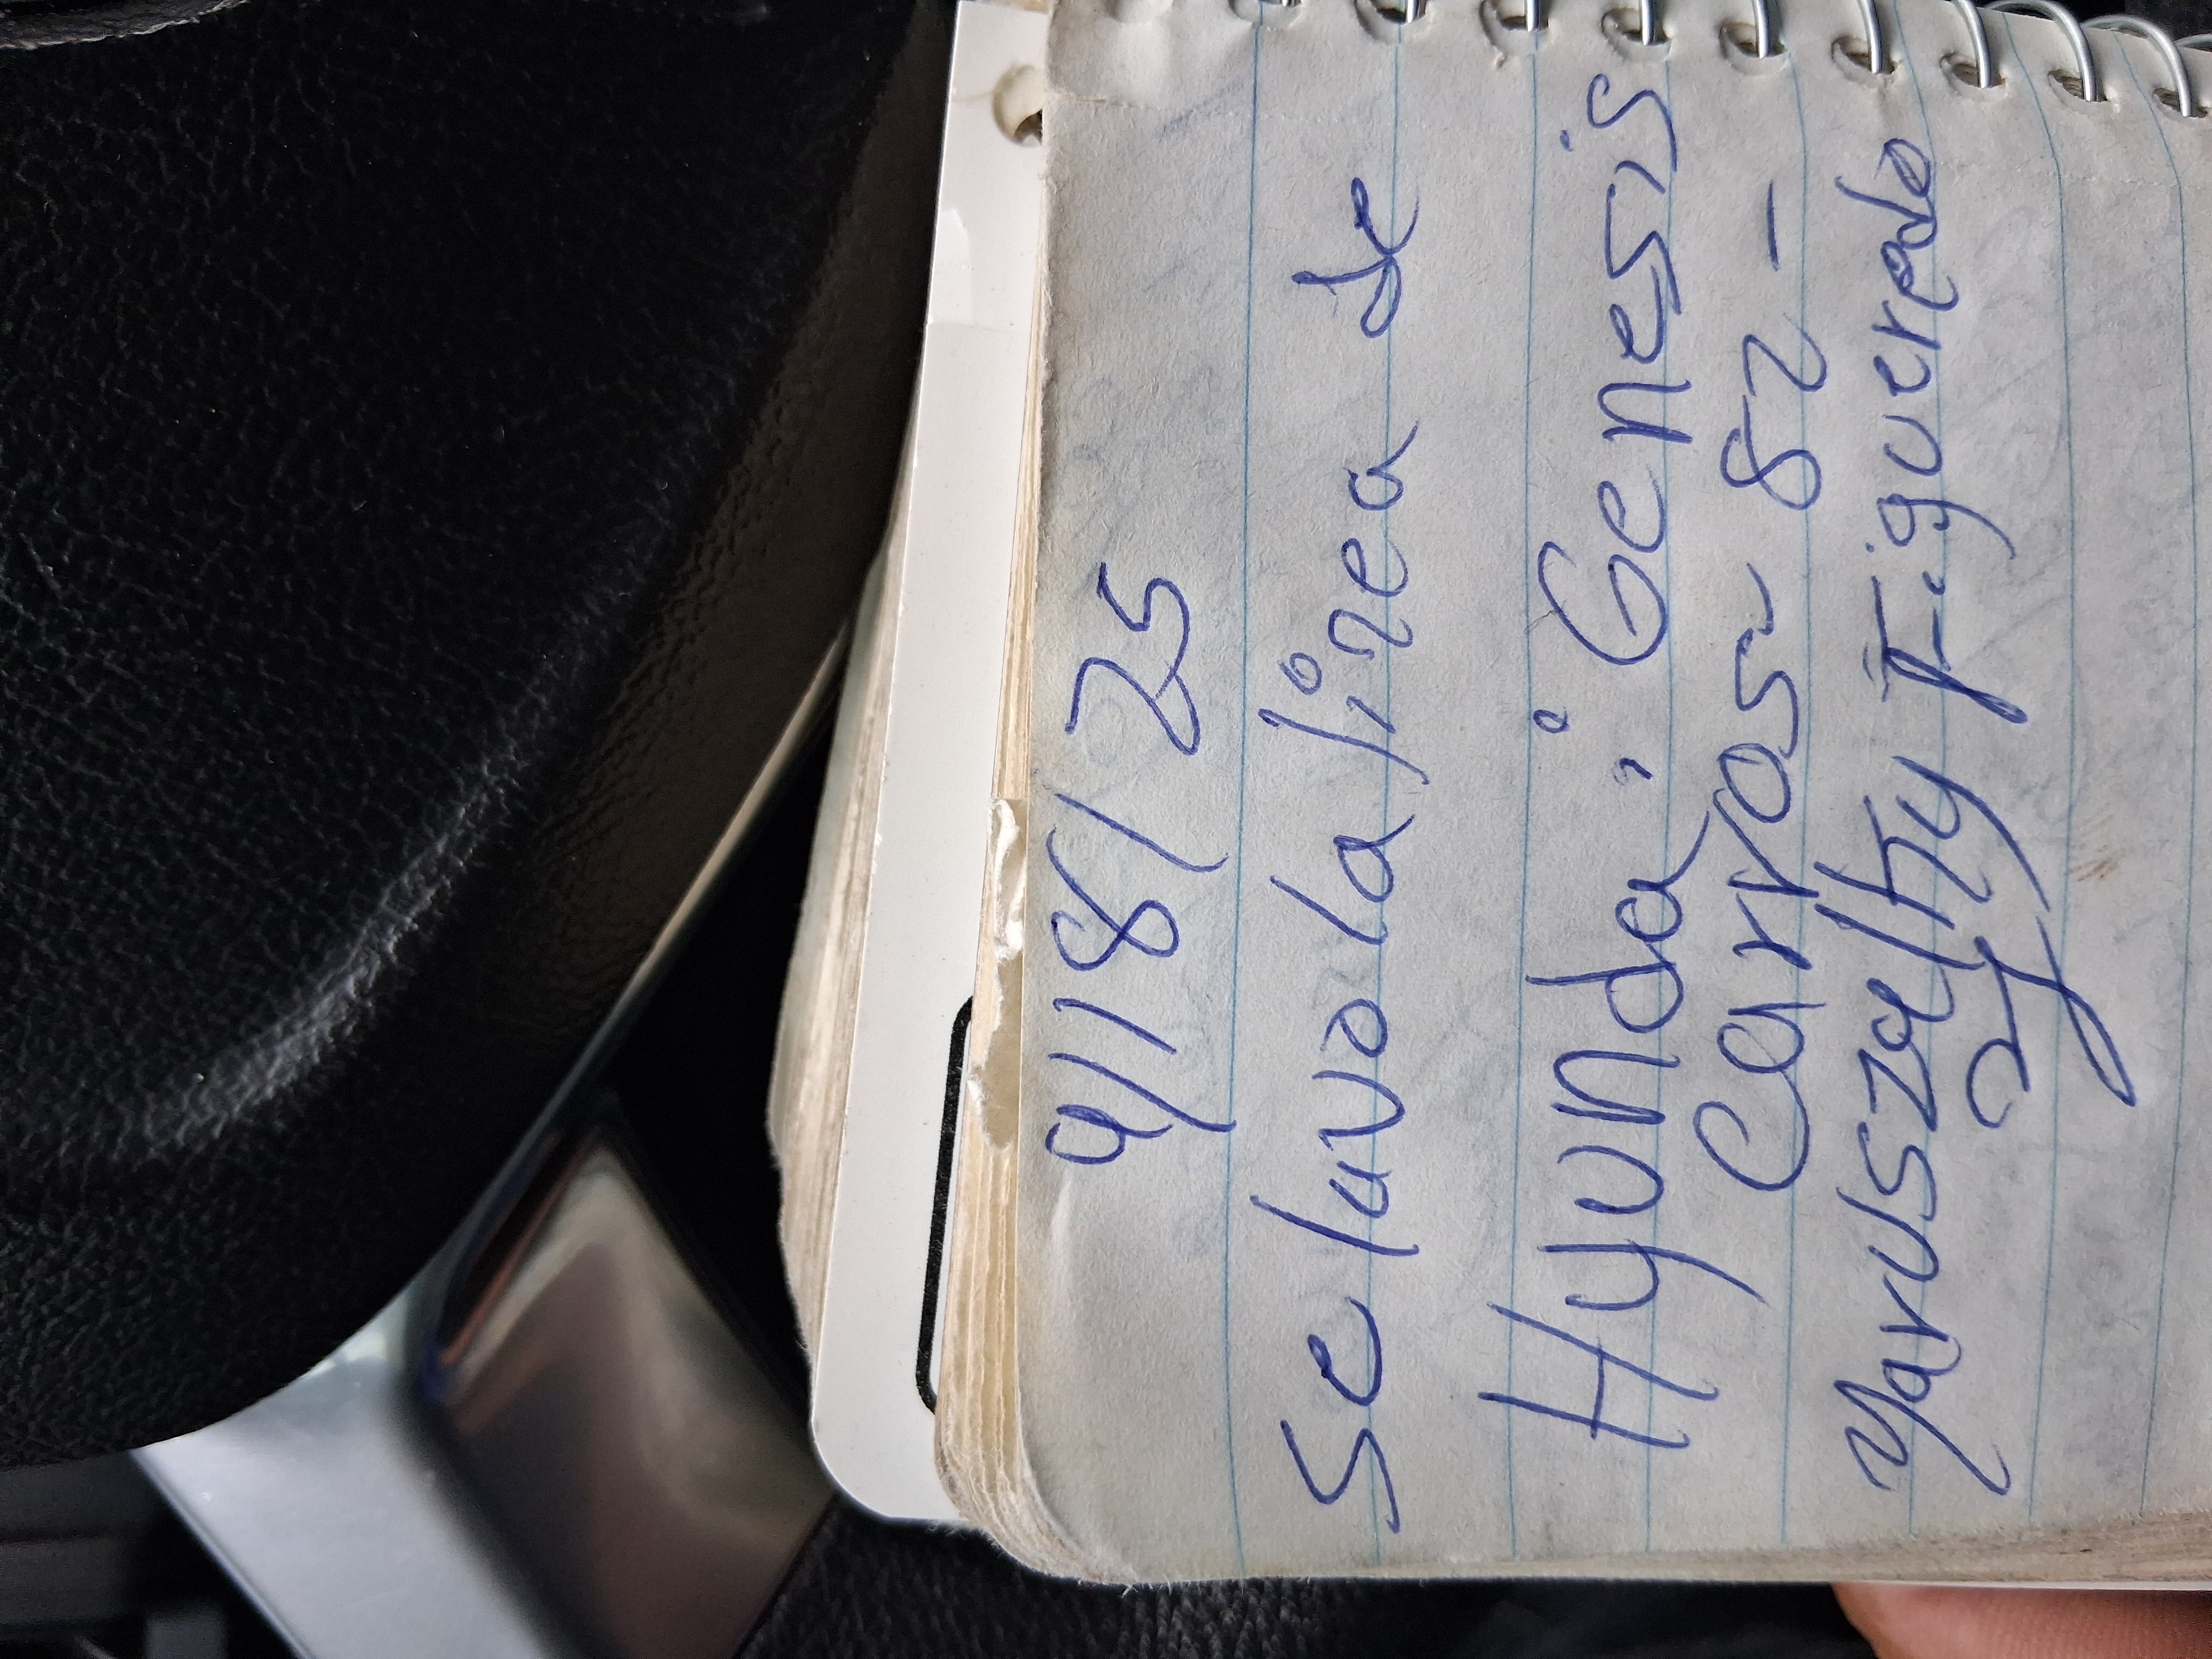 9/18/25
Se lavo la linea de
Hyundai Genesis
Carros 82 -
Yaruszelhy Figueredo